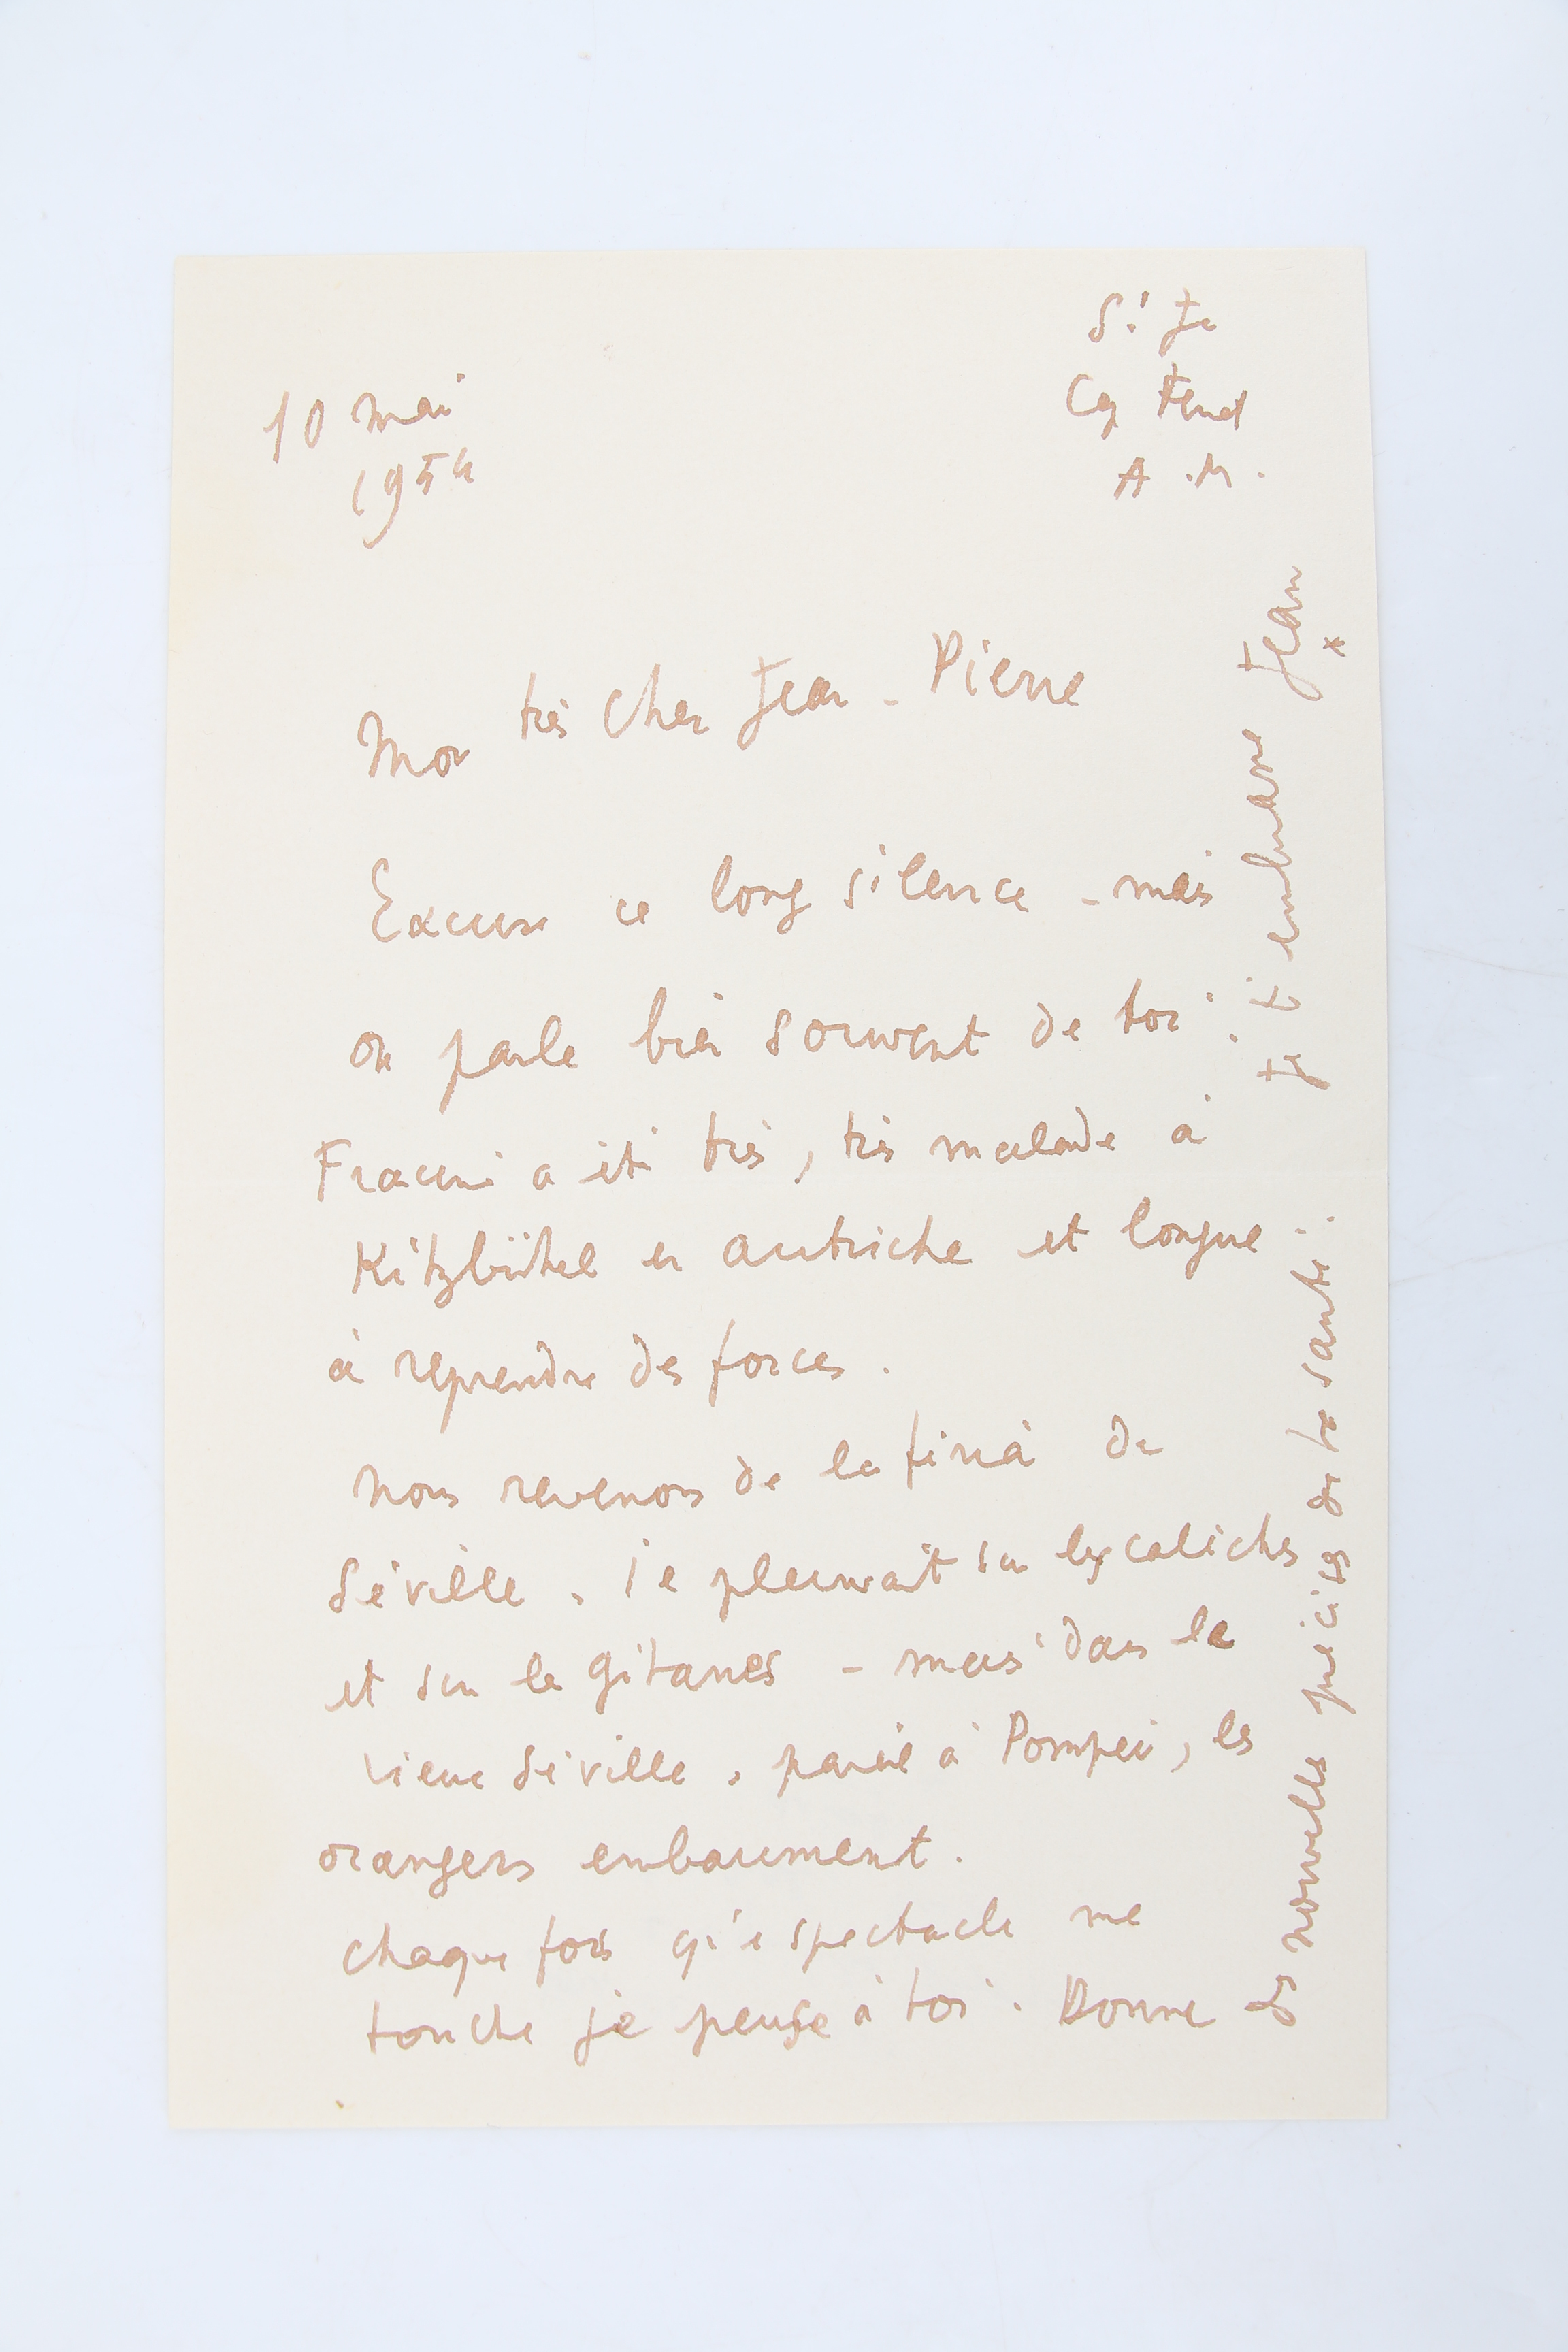 10 mai
1954
St Je
Cap Ferrat
A.M.
Mon très cher Jean-Pierre
Excuse ce long silence - mais
on parle bien souvent de toi.
Francine a été très, très malade à
Kitzbühel en autriche et longue
à reprendre des forces.
Nous revenons de la firià de
Séville. Il pleuvait sur les calèches
et sur le gitanes - mais dans le
vieux Séville, pareil à Pompei, les
orangers embaument.
chaque fois qu'1 spectacle me
touche je pense à toi. Donne
des nouvelles précises de ta santé.
Je t'embrasse
Jean
*